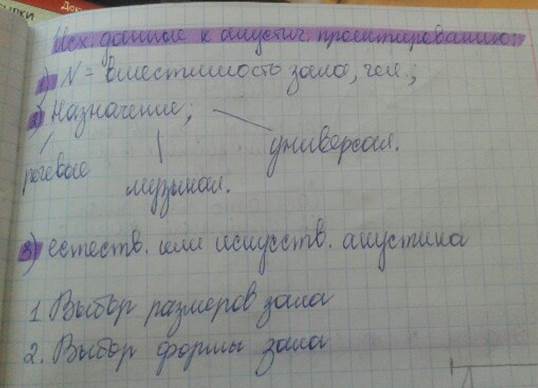 Исх. данные к акустич. проектированию:
1) N = вместимость зала, чел.;
2) Назначение;
речевые музыкал. универсал.
3) естеств. или искусств. акустика
1. Выбор размеров зала
2. Выбор формы зала